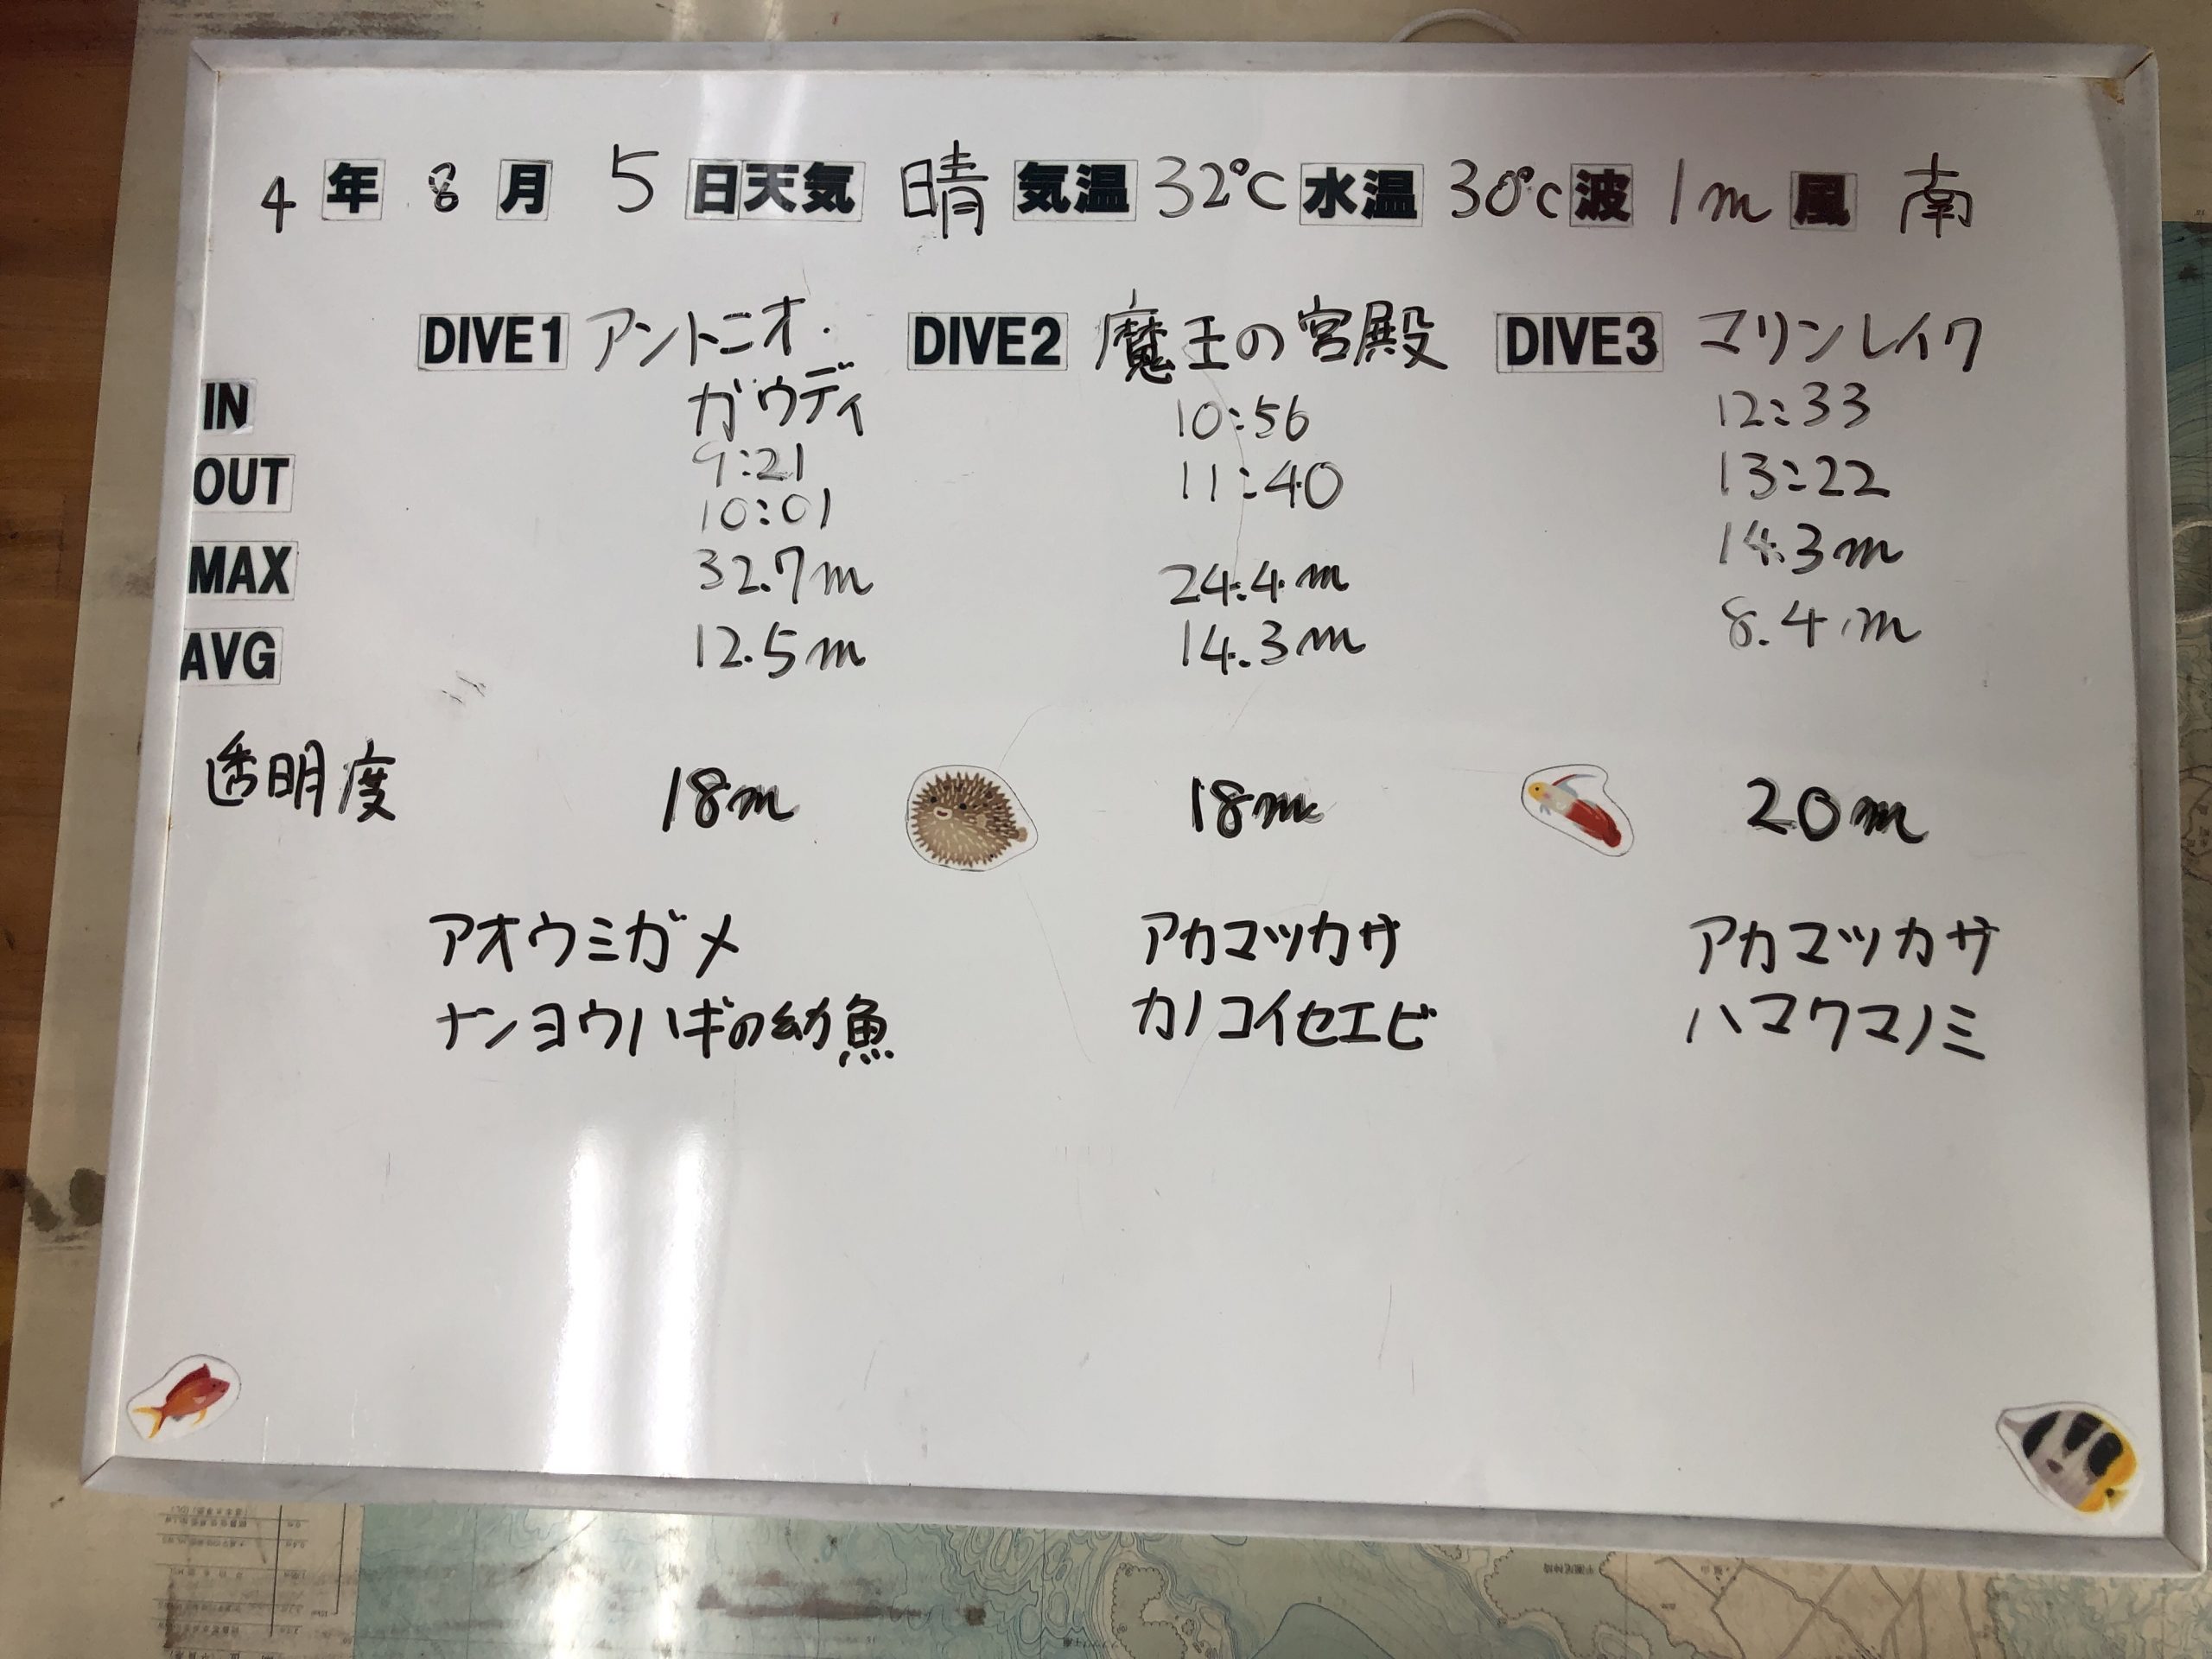 4年 8月 5日 天気 晴 気温 32℃ 水温 30℃ 波 1m 風 南
DIVE1 アントニオ・ DIVE2 魔王の宮殿 DIVE3 マリンレイク
ガウディ
IN 9:21 10:56 12:33
OUT 10:01 11:40 13:22
MAX 32.7m 24.4m 14.3m
AVG 12.5m 14.3m 8.4m
透明度 18m 18m 20m
アオウミガメ アカマツカサ アカマツカサ
ナンヨウハギの幼魚 カノコイセエビ ハマクマノミ